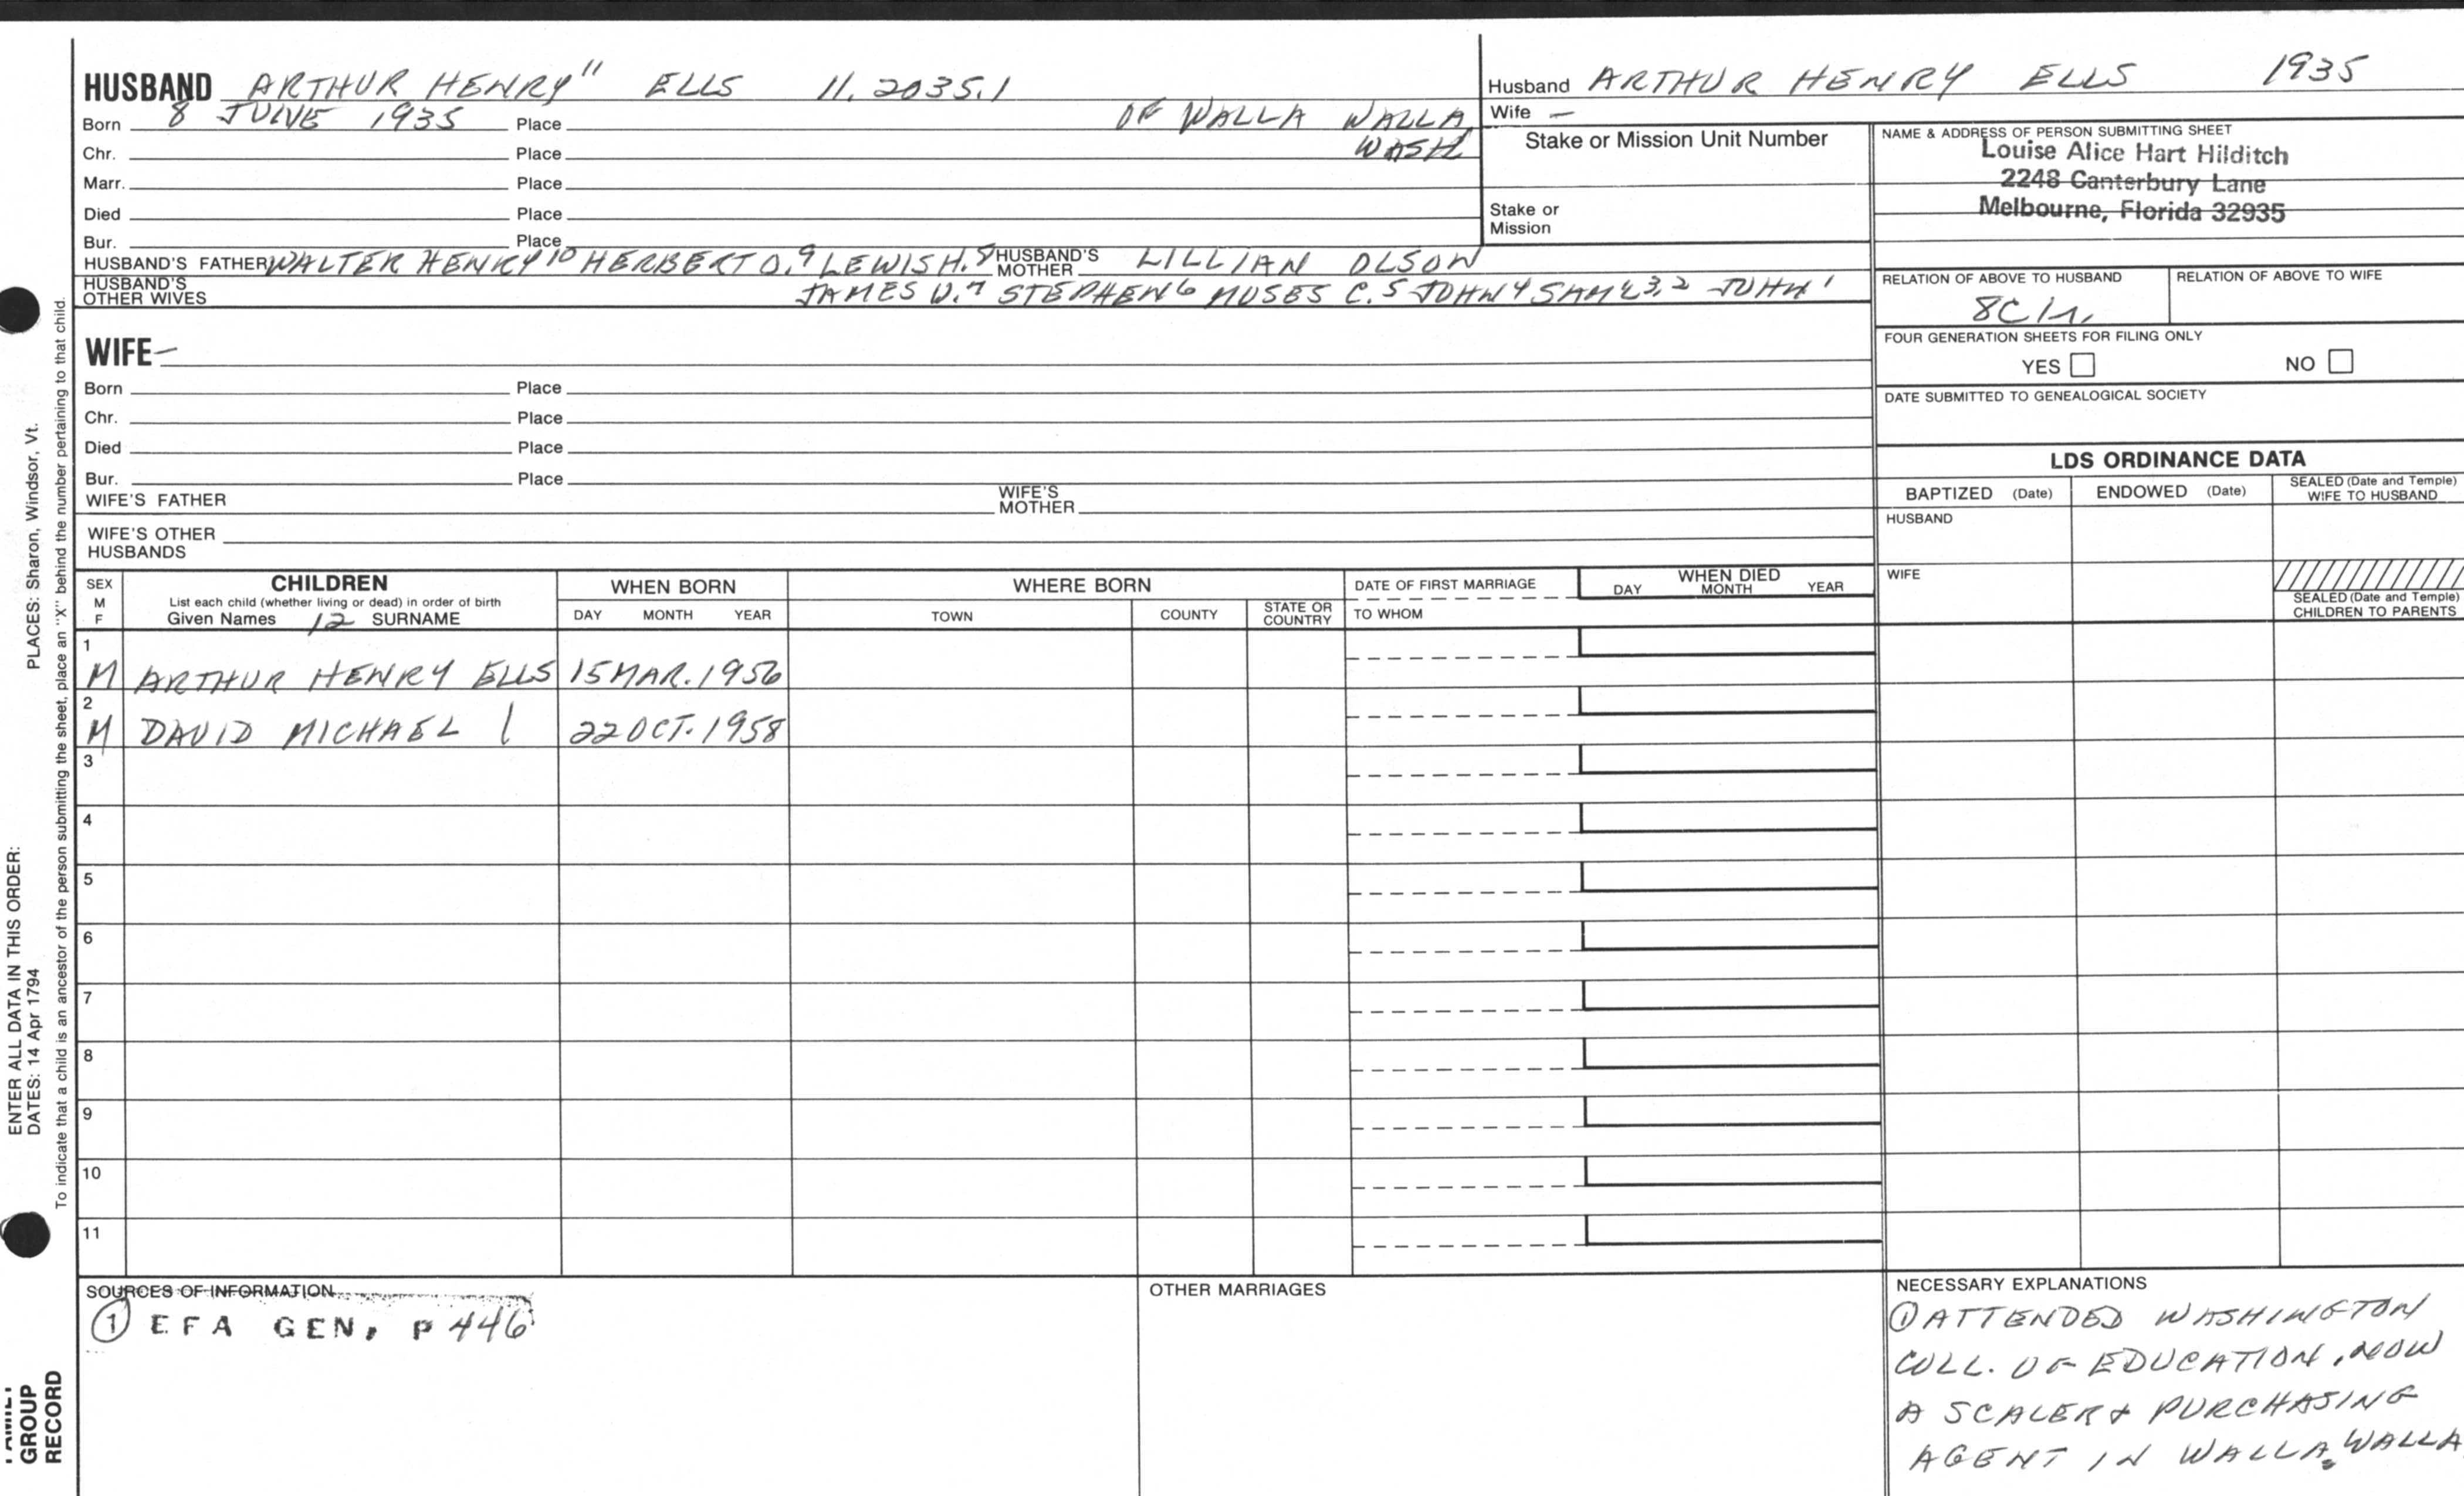 HUSBAND ARTHUR HENRY" ELLS 11.2035.1
Born 8 JUNE 1935 Place OF WALLA WALLA
Chr. Place WASH
Marr. Place
Died Place
Bur. Place
HUSBAND'S FATHER WALTER HENRY 10 HERBERT O. 9 LEWIS H. 8 HUSBAND'S MOTHER LILLIAN OLSON
HUSBAND'S OTHER WIVES JAMES W. 7 STEPHEN 6 MOSES C. 5 JOHN 4 SAML 3,2 JOHN 1
WIFE –
Born Place
Chr. Place
Died Place
Bur. Place
WIFE'S FATHER WIFE'S MOTHER
WIFE'S OTHER HUSBANDS
Husband ARTHUR HENRY ELLS 1935
Wife –
Stake or Mission Unit Number
Stake or
Mission
NAME & ADDRESS OF PERSON SUBMITTING SHEET
Louise Alice Hart Hilditch
2248 Canterbury Lane
Melbourne, Florida 32935
RELATION OF ABOVE TO HUSBAND RELATION OF ABOVE TO WIFE
FOUR GENERATION SHEETS FOR FILING ONLY
YES NO
DATE SUBMITTED TO GENEALOGICAL SOCIETY
LDS ORDINANCE DATA
BAPTIZED (Date) ENDOWED (Date) SEALED (Date and Temple) WIFE TO HUSBAND
HUSBAND
WIFE
SEALED (Date and Temple)
CHILDREN TO PARENTS
SEX M F CHILDREN WHEN BORN WHERE BORN DATE OF FIRST MARRIAGE WHEN DIED
List each child (whether living or dead) in order of birth
Given Names 12 SURNAME DAY MONTH YEAR TOWN COUNTY STATE OR COUNTRY TO WHOM DAY MONTH YEAR
1
M ARTHUR HENRY ELLS 15 MAR. 1956
2
M DAVID MICHAEL 22 OCT. 1958
3
4
5
6
7
8
9
10
11
SOURCES OF INFORMATION
① EFA GEN, P 446
OTHER MARRIAGES
NECESSARY EXPLANATIONS
① ATTENDED WASHINGTON
COLL. OF EDUCATION, NOW
A SCALER & PURCHASING
AGENT IN WALLA WALLA
ENTER ALL DATA IN THIS ORDER:
DATES: 14 Apr 1794 PLACES: Sharon, Windsor, Vt.
To indicate that a child is an ancestor of the person submitting the sheet, place an "X" behind the number pertaining to that child.
GROUP
RECORD